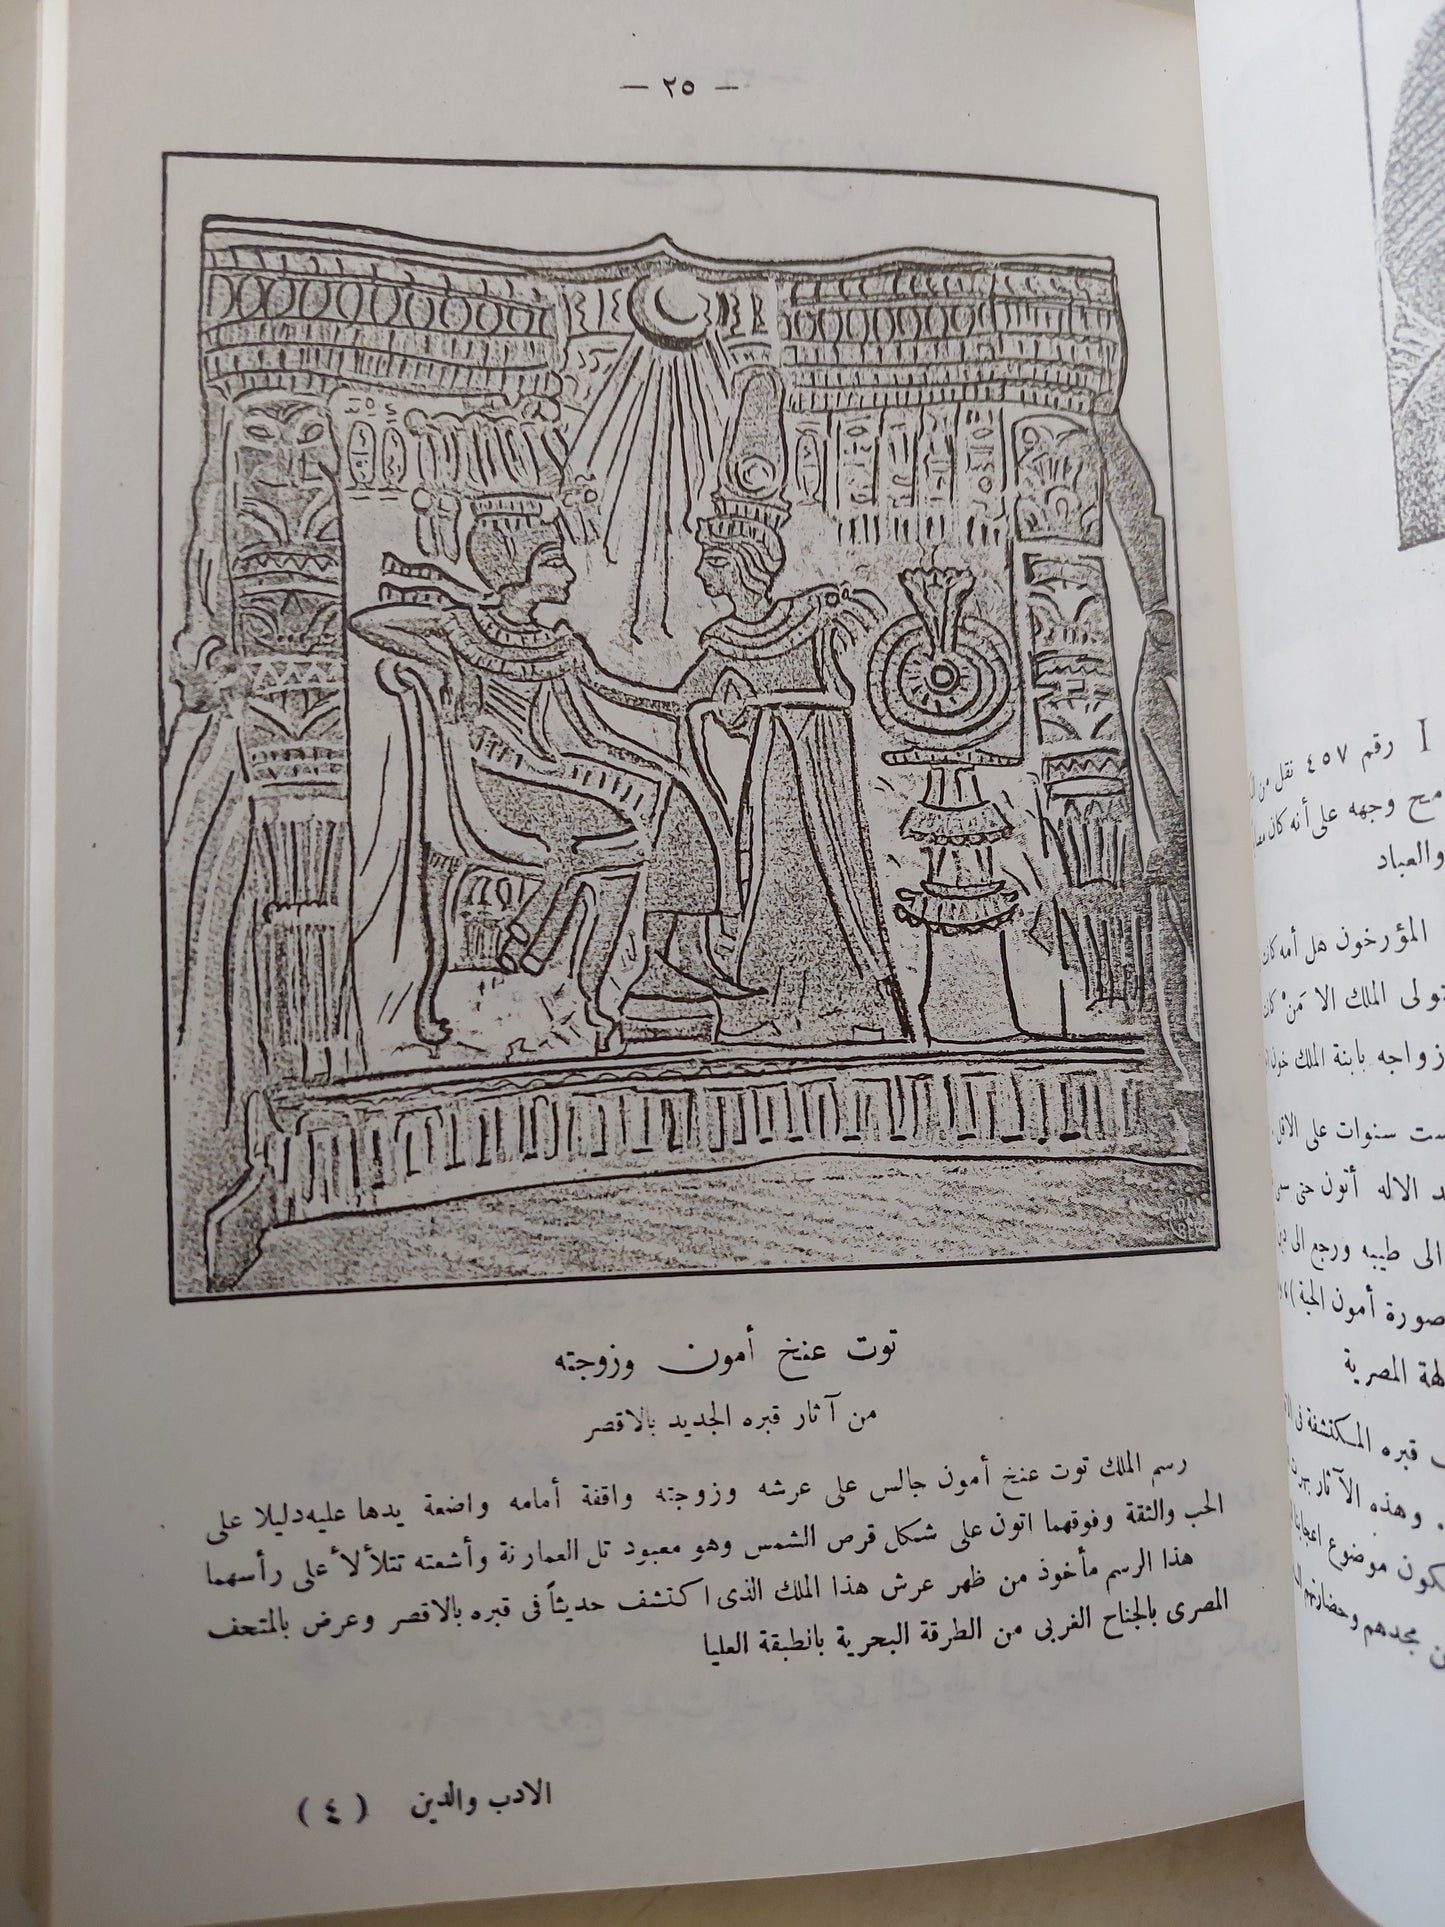 — ٢٥ —
توت عنخ أمون وزوجته
من آثار قبره الجديد بالاقصر
رسم الملك توت عنخ أمون جالس على عرشه وزوجته واقفة أمامه واضعة يدها عليه دليلا على
الحب والثقة وفوقهما اتون على شكل قرص الشمس وهو معبود تل العمارنة وأشعته تتلألأ على رأسهما
هذا الرسم مأخوذ من ظهر عرش هذا الملك الذى اكتشف حديثاً فى قبره بالاقصر وعرض بالمتحف
المصرى بالجناح الغربى من الطرقة البحرية بانطبقة العليا
الادب والدين (٤)
I رقم ٤٥٧ نقل من
وجهه على أنه كان
والعباد
المؤرخون هل أمه كان
تولى الملك الا مَنْ كان
زواجه بابنة الملك
ست سنوات على الاقل
الاله أتون حتى
الى طيبه ورجع الى
صورة أمون الحية)
المصرية
قبره المكتشفة فى
وهذه الآثار
موضوع
مجدهم وحضارتهم